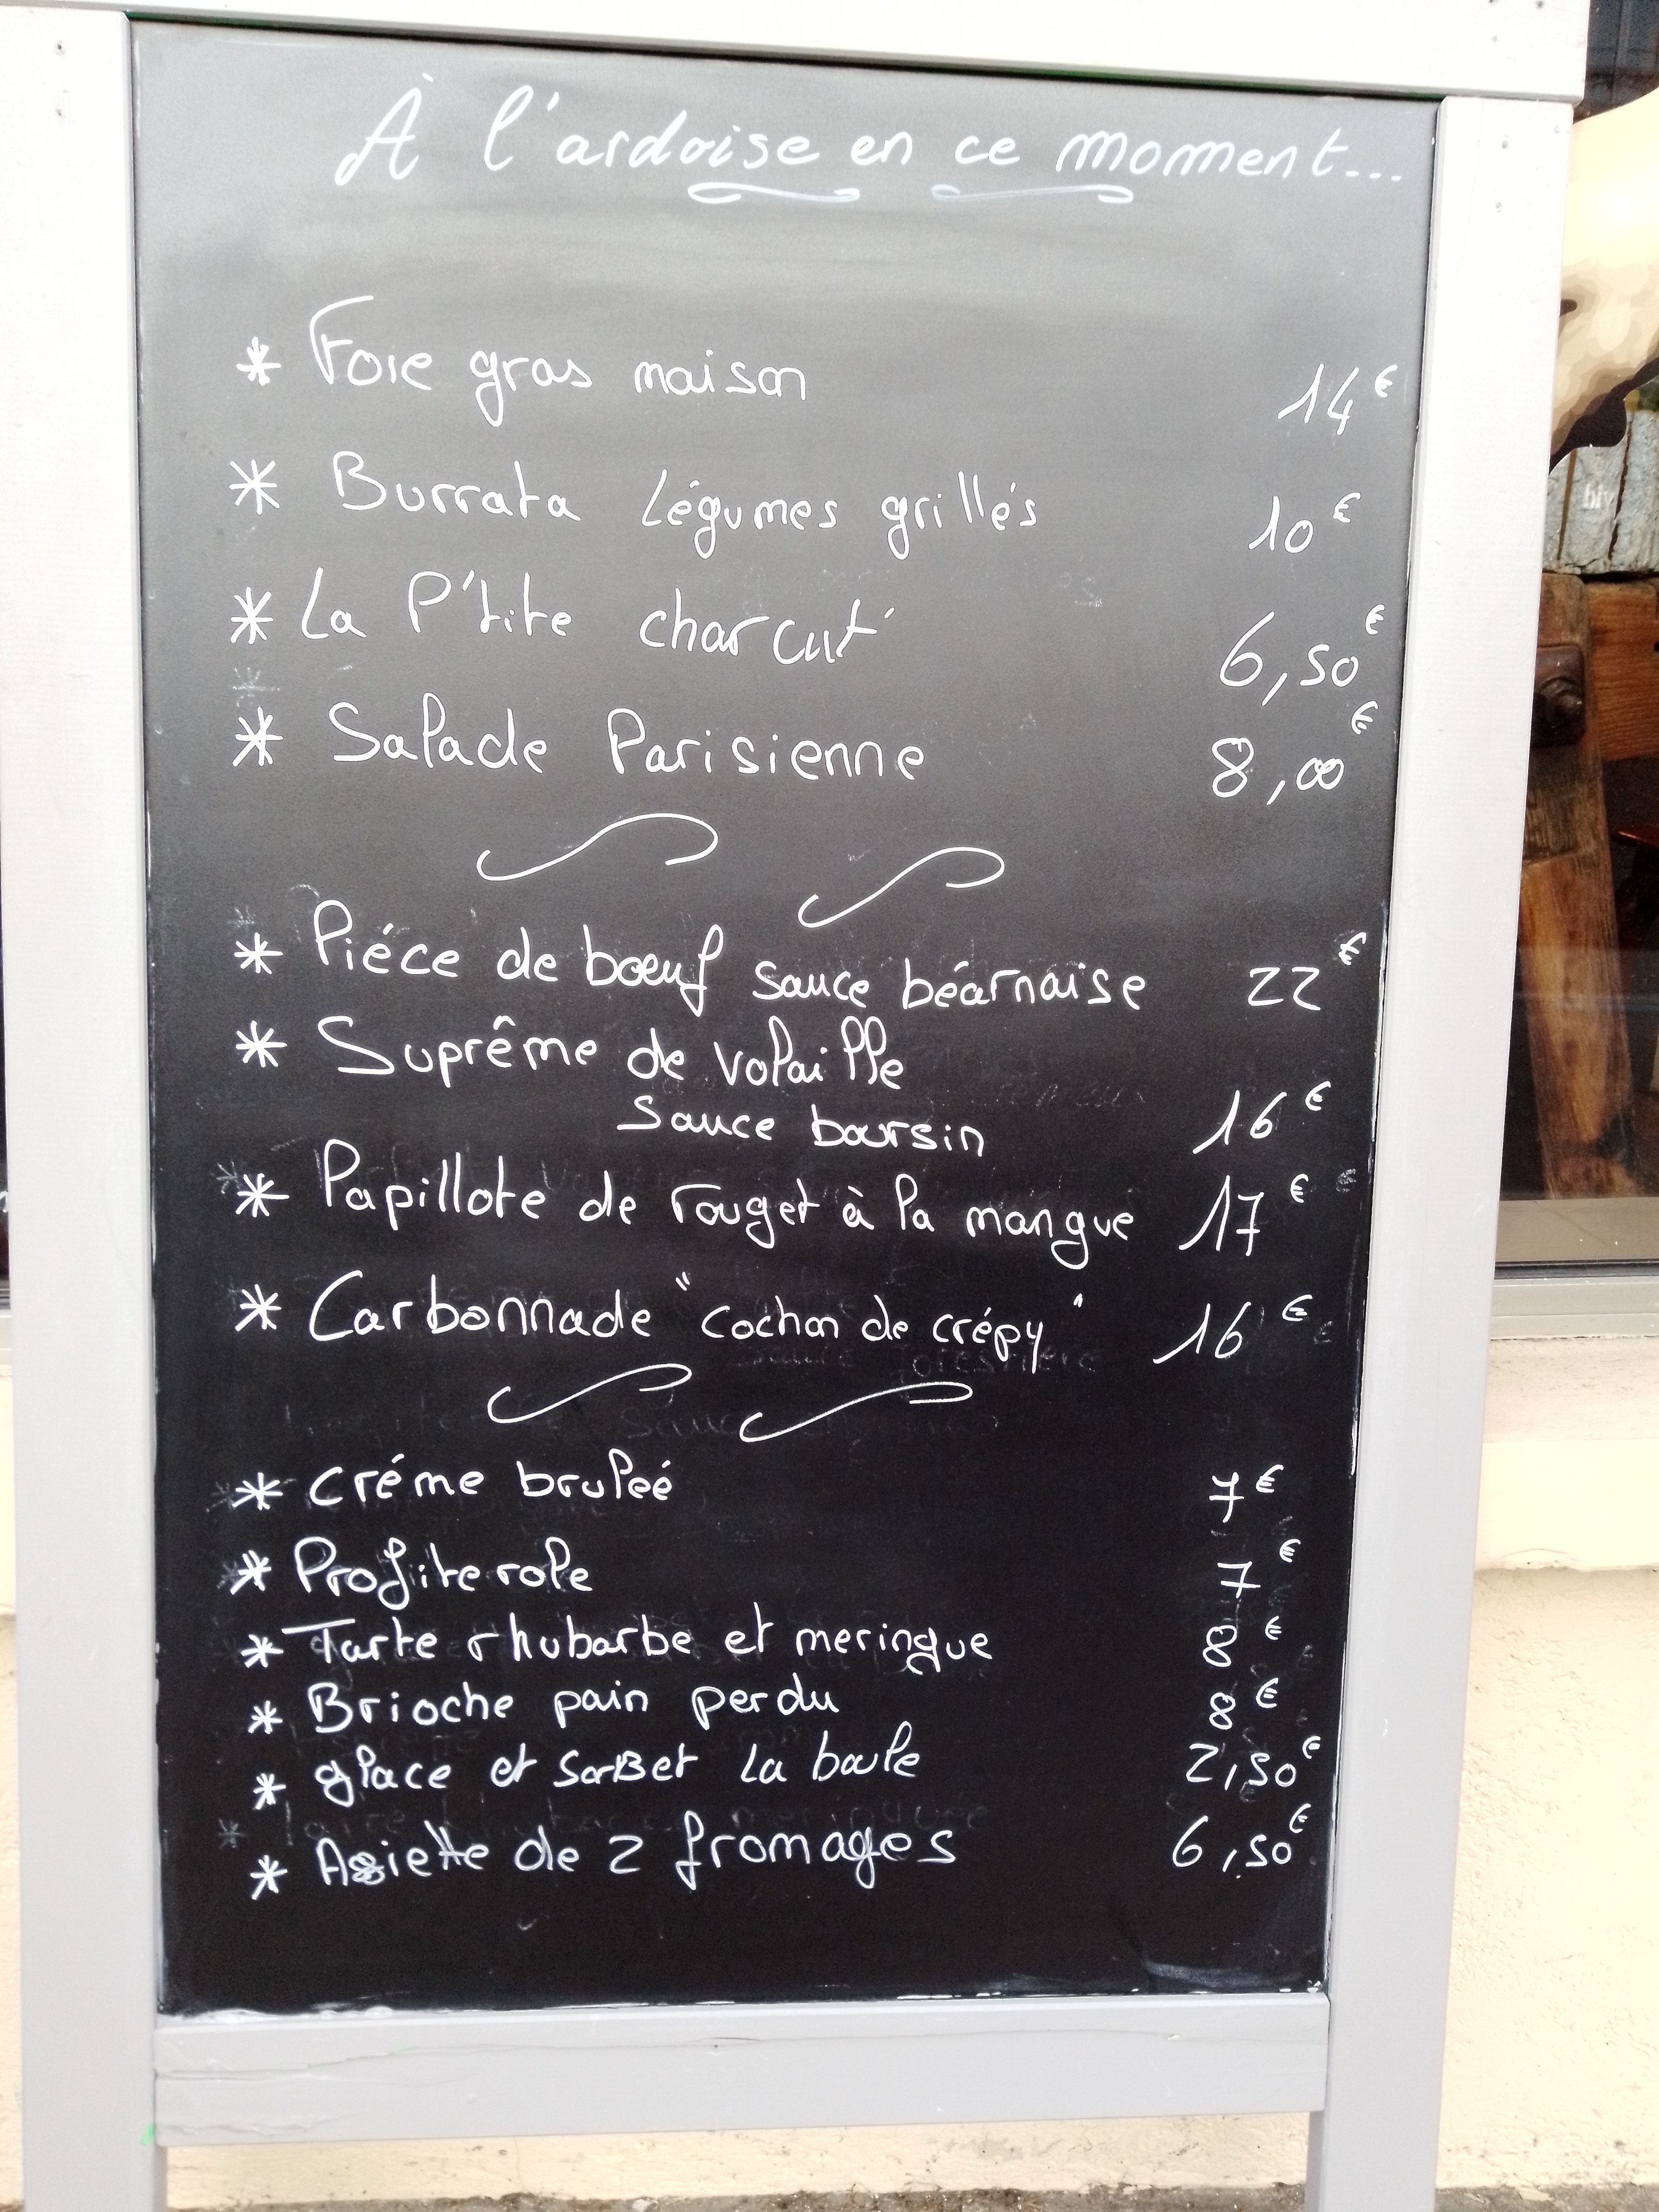 À l'ardoise en ce moment...
* Foie gras maison 14€
* Burrata Légumes grillés 10€
* La P'tite charcut' 6,50€
* Salade Parisienne 8,00€
* Piéce de bœuf sauce béarnaise 22€
* Suprême de volaille
sauce boursin 16€
* Papillote de rouget à la mangue 17€
* Carbonnade "cochon de crépy" 16€
* créme bruleé 7€
* Profiterole 7€
* Tarte rhubarbe et meringue 8€
* Brioche pain perdu 8€
* glace et sorBet La boule 2,50€
* Assiette de 2 fromages 6,50€